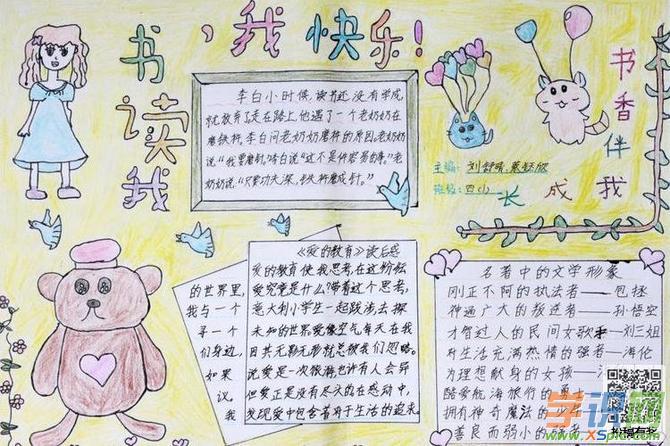 书,我快乐!
读
我
李白小时候,读书还没有学成,
就放弃了走在路上他遇了一个老奶奶在
磨铁杵,李白问老奶奶磨杵的原因。老奶奶
说:"我要磨针,"李白说:"这不是件容易的事,"老
奶奶说:"只要功夫深,铁杵磨成针。"
书香伴我
成
长
主编:刘舒晴、
班级:四(1)
《爱的教育》读后感
爱的教育使我思考,在这纷纭
爱究竟是什么?带着这个思考,
意大利小学生一起跋涉,去探
未知的世界爱像空气每天在我
因其无影无形就总被我们忽略。
说爱是一次旅梅也许有人会异
但爱正是没有尽头的在感动中,
发现爱中包含着对于生活的追求
的世界里,
我与一个
寻一个
们身边,
如果
议,
我
名著中的文学形象
刚正不阿的执法者——包拯
神通广大的叛逆者——孙悟空
才智过人的民间女歌手——刘三姐
对生活充满热情的强者——海伦
为理想献身的女孩——
酷爱航海旅行的勇士
拥有神奇魔法的
善良而弱小的读者
学识网
投稿有奖